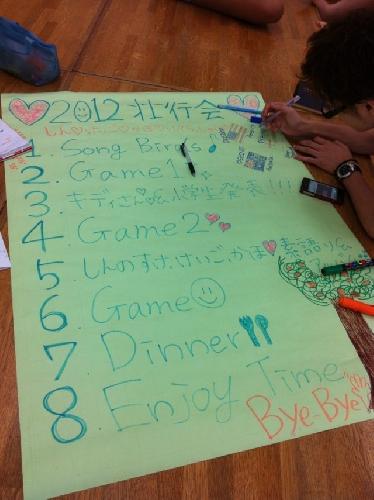 ♡2012 壮行会
1. Song Birds
2. Game1
3. キディさん&小学生発表!!!
4. Game2
5. しんのすけ,けいご,かほ♡素語り
6. Game☺
7. Dinner
8. Enjoy Time
Bye-Bye